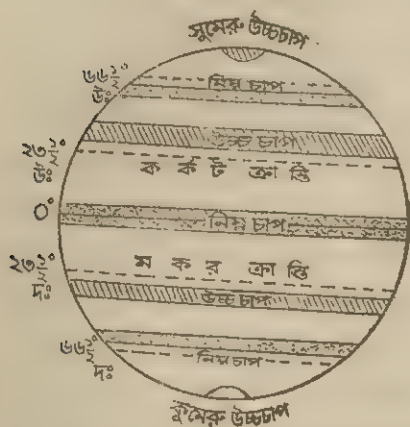 সুমেরু উচ্চচাপ
৬৬½° উঃ
নিম্ন চাপ
উচ্চ চাপ
২৩½° উঃ
কর্কট ক্রান্তি
০°
নিম্ন চাপ
২৩½° দঃ
মকর ক্রান্তি
উচ্চচাপ
৬৬½° দঃ
নিম্নচাপ
কুমেরু উচ্চচাপ